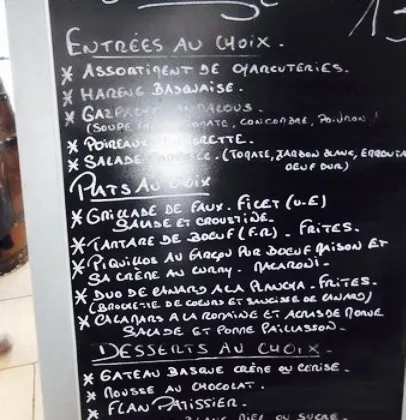 13
ENTRÉES AU CHOIX.
* ASSORTIMENT DE CHARCUTERIES.
* HARENG BASQUAISE.
* GAZPACHO ANDALOUS.
(SOUPE TOMATE, CONCOMBRE, POIVRON)
* POIREAUX
* SALADE (TOMATE, JAMBON BLANC, EMMENTAL
OEUF DUR)
PLATS AU CHOIX
* GRILLADE DE FAUX-FILET (U-E)
SALADE ET CROUSTINE.
* TARTARE DE BOEUF (FR) - FRITES.
* PIQUILLOS AU FARÇON PUR BOEUF MAISON ET
SA CRÈME AU CURRY - MACARONI -
* DUO DE CANARD A LA PLANCHA - FRITES.
(BROCHETTE DE COEURS ET SAUCISSE DE CANARD)
* CALAMARS A LA ROMAINE ET ACRAS DE MORUE
SALADE ET POMME PAILLASSON -
DESSERTS AU CHOIX -
* GATEAU BASQUE CRÈME OU CERISE -
* MOUSSE AU CHOCOLAT.
* FLAN PATISSIER.
BLANC MIEL OU SUCRE